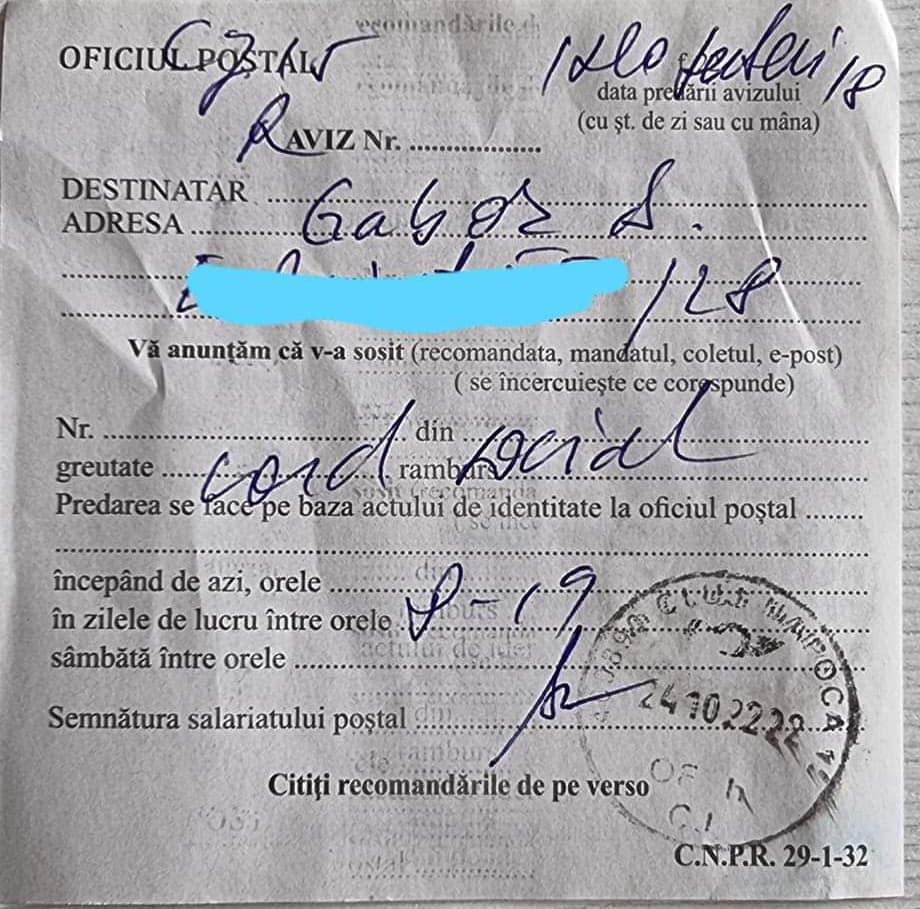 OFICIUL POȘTAL Cj 9
18
data predării avizului
(cu șt. de zi sau cu mâna)
R AVIZ Nr. ....................
DESTINATAR ....................
ADRESA .................... Gabor S.
/28
Vă anunțăm că v-a sosit (recomandata, mandatul, coletul, e-post)
( se încercuiește ce corespunde)
Nr. .................... din ....................
greutate .......... card ramburs social
Predarea se face pe baza actului de identitate la oficiul poștal ........
începând de azi, orele ....................
în zilele de lucru între orele 8-19
sâmbătă între orele ....................
Semnătura salariatului poștal ....................
CLUJ NAPOCA
24 10 22
Citiți recomandările de pe verso
C.N.P.R. 29-1-32